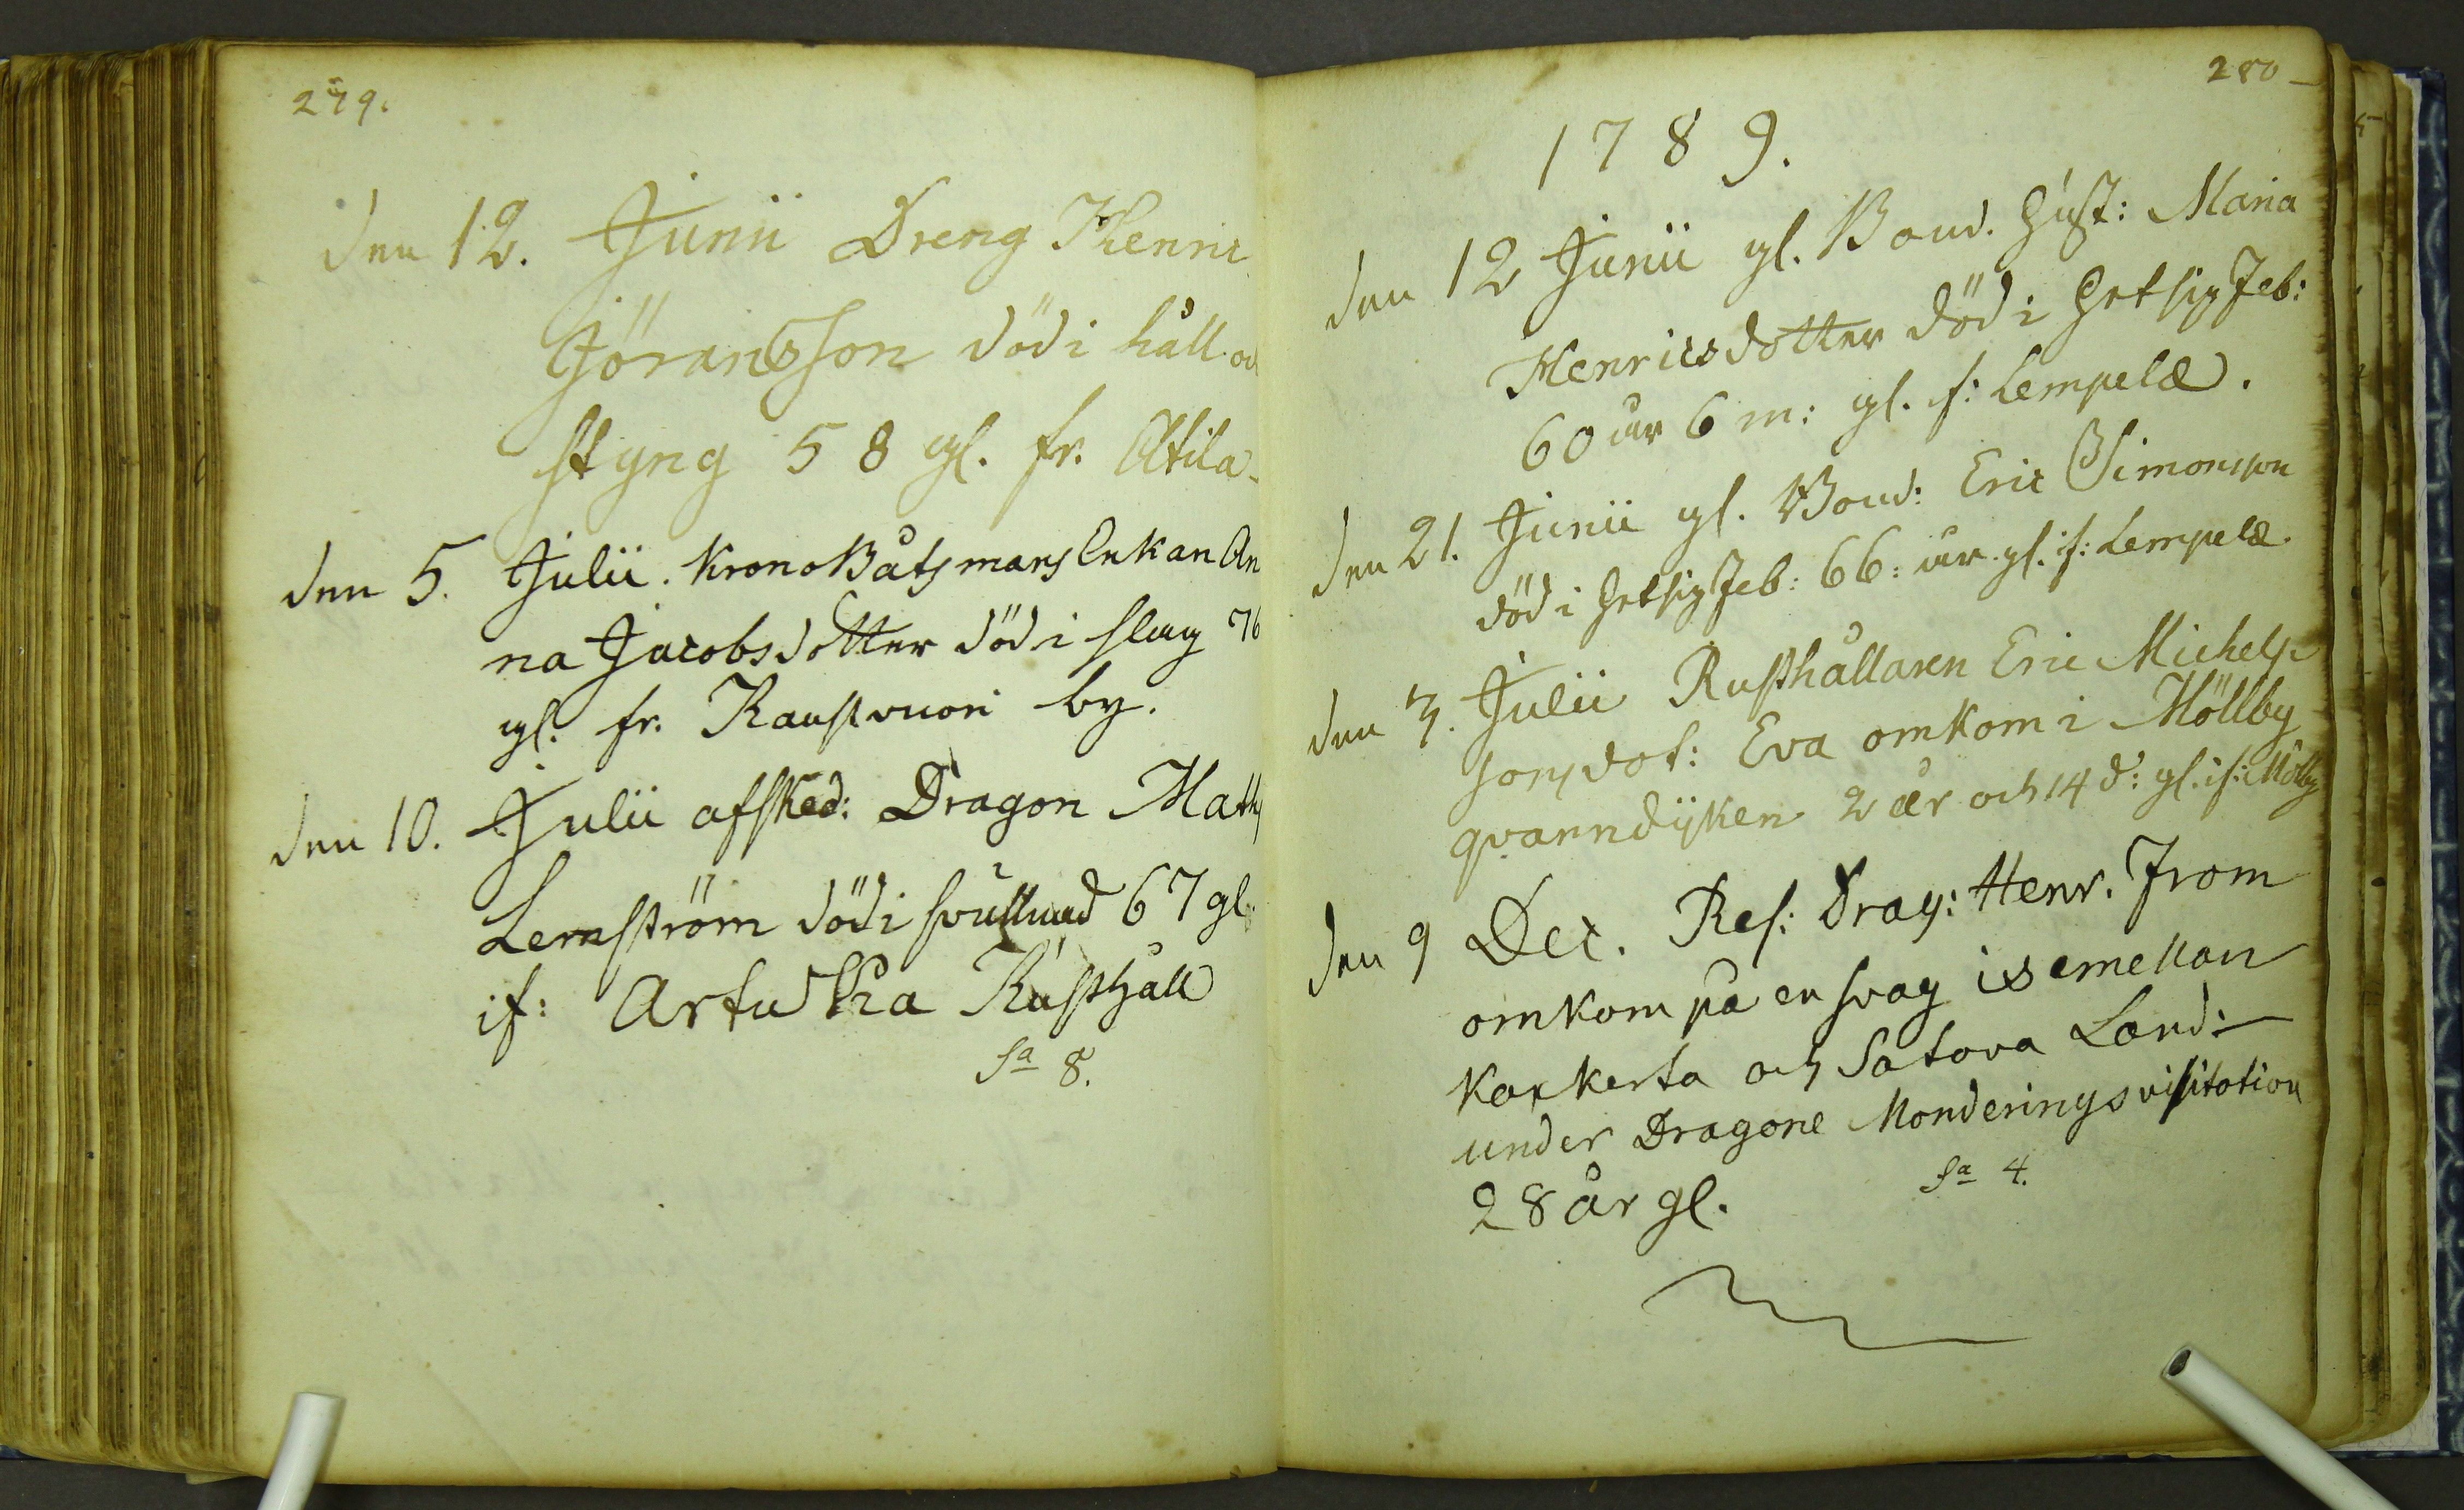 279.
den 12. Junii Dreng Henric
Jöransson död i håll och
styng 58 gl. fr. Atila
den 5. Julii. Krono Båtsmans Enkan An
na Jacobsdotter död i slag 76
gl. fr. Kaustvuori by.
den 10. Julii afsked: Dragon Matts
Lemström död i svullnad 67 gl.
if: Artukka Rusthåll
Sa 8.
280
1789.
den 12 Junii gl. Bond. Hust: Maria
Henricsdotter död i Hetsig Feb:
60 år 6 m: gl. if: Lempelæ.
den 21. Junii gl. Bond: Eric Simonsson
död i Hetsig Feb: 66: år gl. if: Lempelæ.
den 3. Julii Rusthållaren Eric Michels
sons dot: Eva omkom i Möllby
qvarndÿken 2 år och 14 d: gl. if: Mölby
den 9 Dec. Res: Drag: Henr. From
omkom på en svag is emellan
Karkerta och Satava Land:
under Dragone Monderings visitation
28 år gl.
Sa 4.